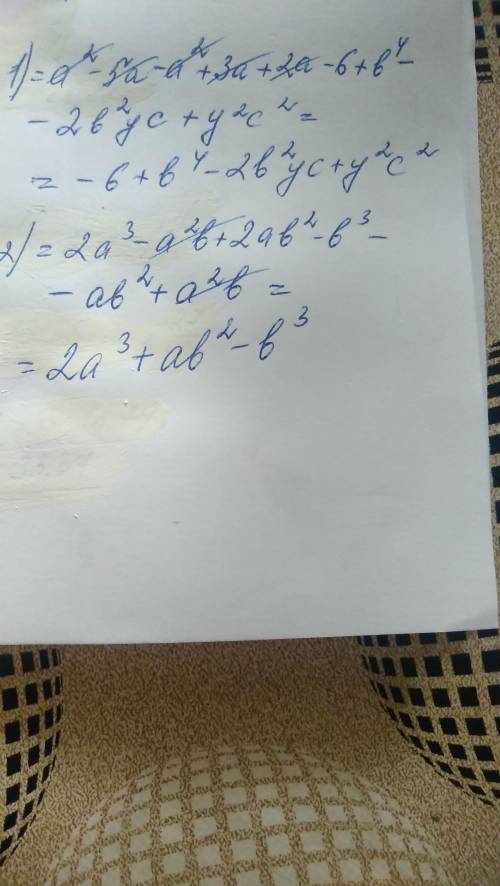 1) = a² - 5a - a² + 3a + 2a - 6 + в⁴ -
- 2в²yc + y²c² =
= -6 + в⁴ - 2в²yc + y²c²
2) = 2a³ - a²в + 2aв² - в³ -
- aв² + a²в =
= 2a³ + aв² - в³